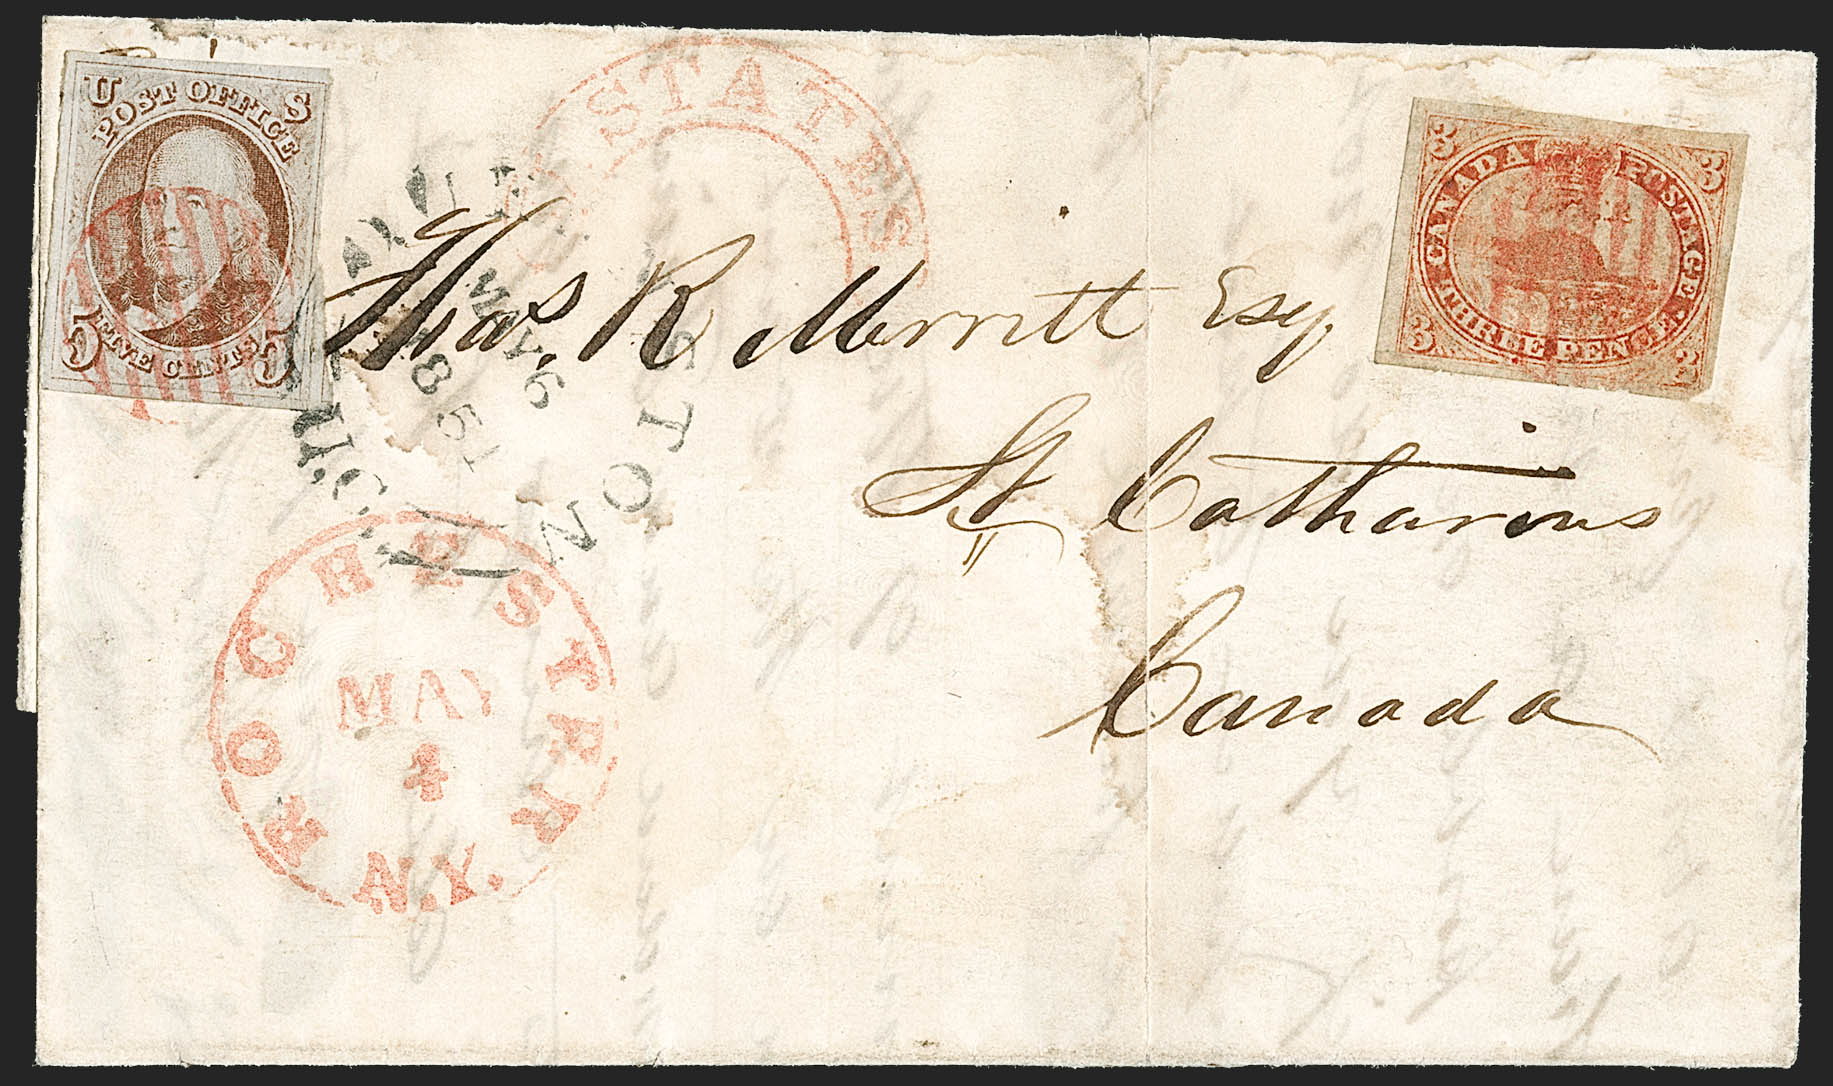 U S
POST OFFICE
5 FIVE CENTS 5
STATES
3 3
CANADA POSTAGE
THREE PENCE
3 3
Thos. R Merritt Esq.
St Catharines
Canada
MY 6
1851
STON
ROCHESTER
MAY
4
N.Y.